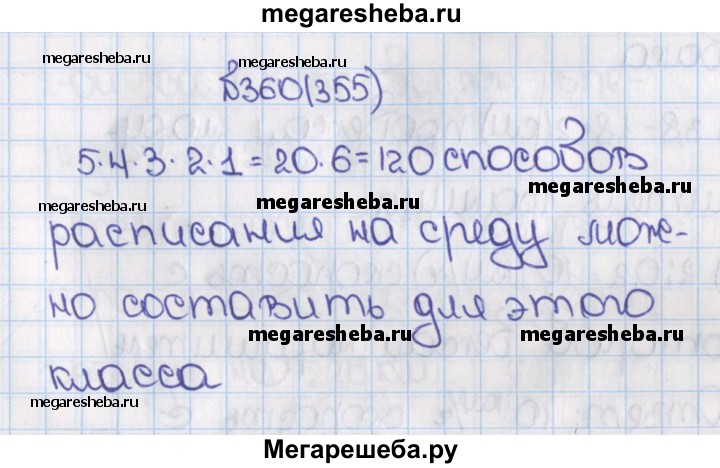 megaresheba.ru
megaresheba.ru
megaresheba.ru
№360(355)
5·4·3·2·1=20·6=120 способов
megaresheba.ru
megaresheba.ru
расписания на среду мож-
но составить для этого
megaresheba.ru
megaresheba.ru
класса
megaresheba.ru
Мегарешеба.ру